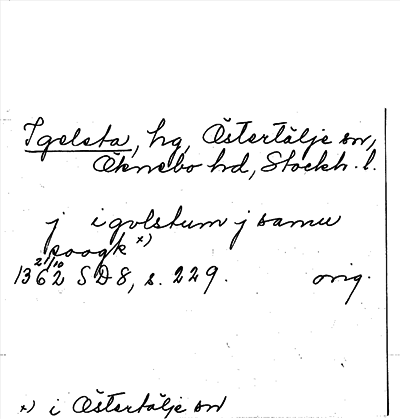 Igelsta, hg, Östertälje sn,
Öknebo hd, Stockh. l.
j igolstum j samu
soogk x)
21/10
1362 SD8, s. 229. orig.
x) i Östertälje sn